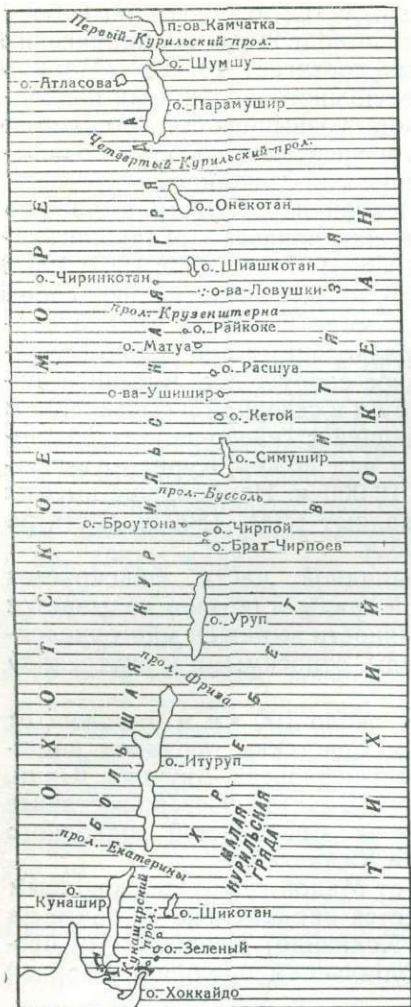 п-ов Камчатка
Первый Курильский прол.
о. Шумшу
о. Атласова
о. Парамушир
Четвертый Курильский прол.
о. Онекотан
о. Шиашкотан
о. Чиринкотан
о-ва Ловушки
прол. Крузенштерна
о. Райкоке
о. Матуа
о. Расшуа
о-ва Ушишир
о. Кетой
о. Симушир
прол. Буссоль
о. Броутона
о. Чирпой
о. Брат Чирпоев
о. Уруп
прол. Фриза
о. Итуруп
прол. Екатерины
о.
Кунашир
Кунаширский
прол.
о. Шикотан
о. Зеленый
о. Хоккайдо
МАЛАЯ
КУРИЛЬСКАЯ
ГРЯДА
БОЛЬШАЯ КУРИЛЬСКАЯ ГРЯДА
ХРЕБЕТ ВИТЯЗЯ
ОХОТСКОЕ МОРЕ
ТИХИЙ ОКЕАН